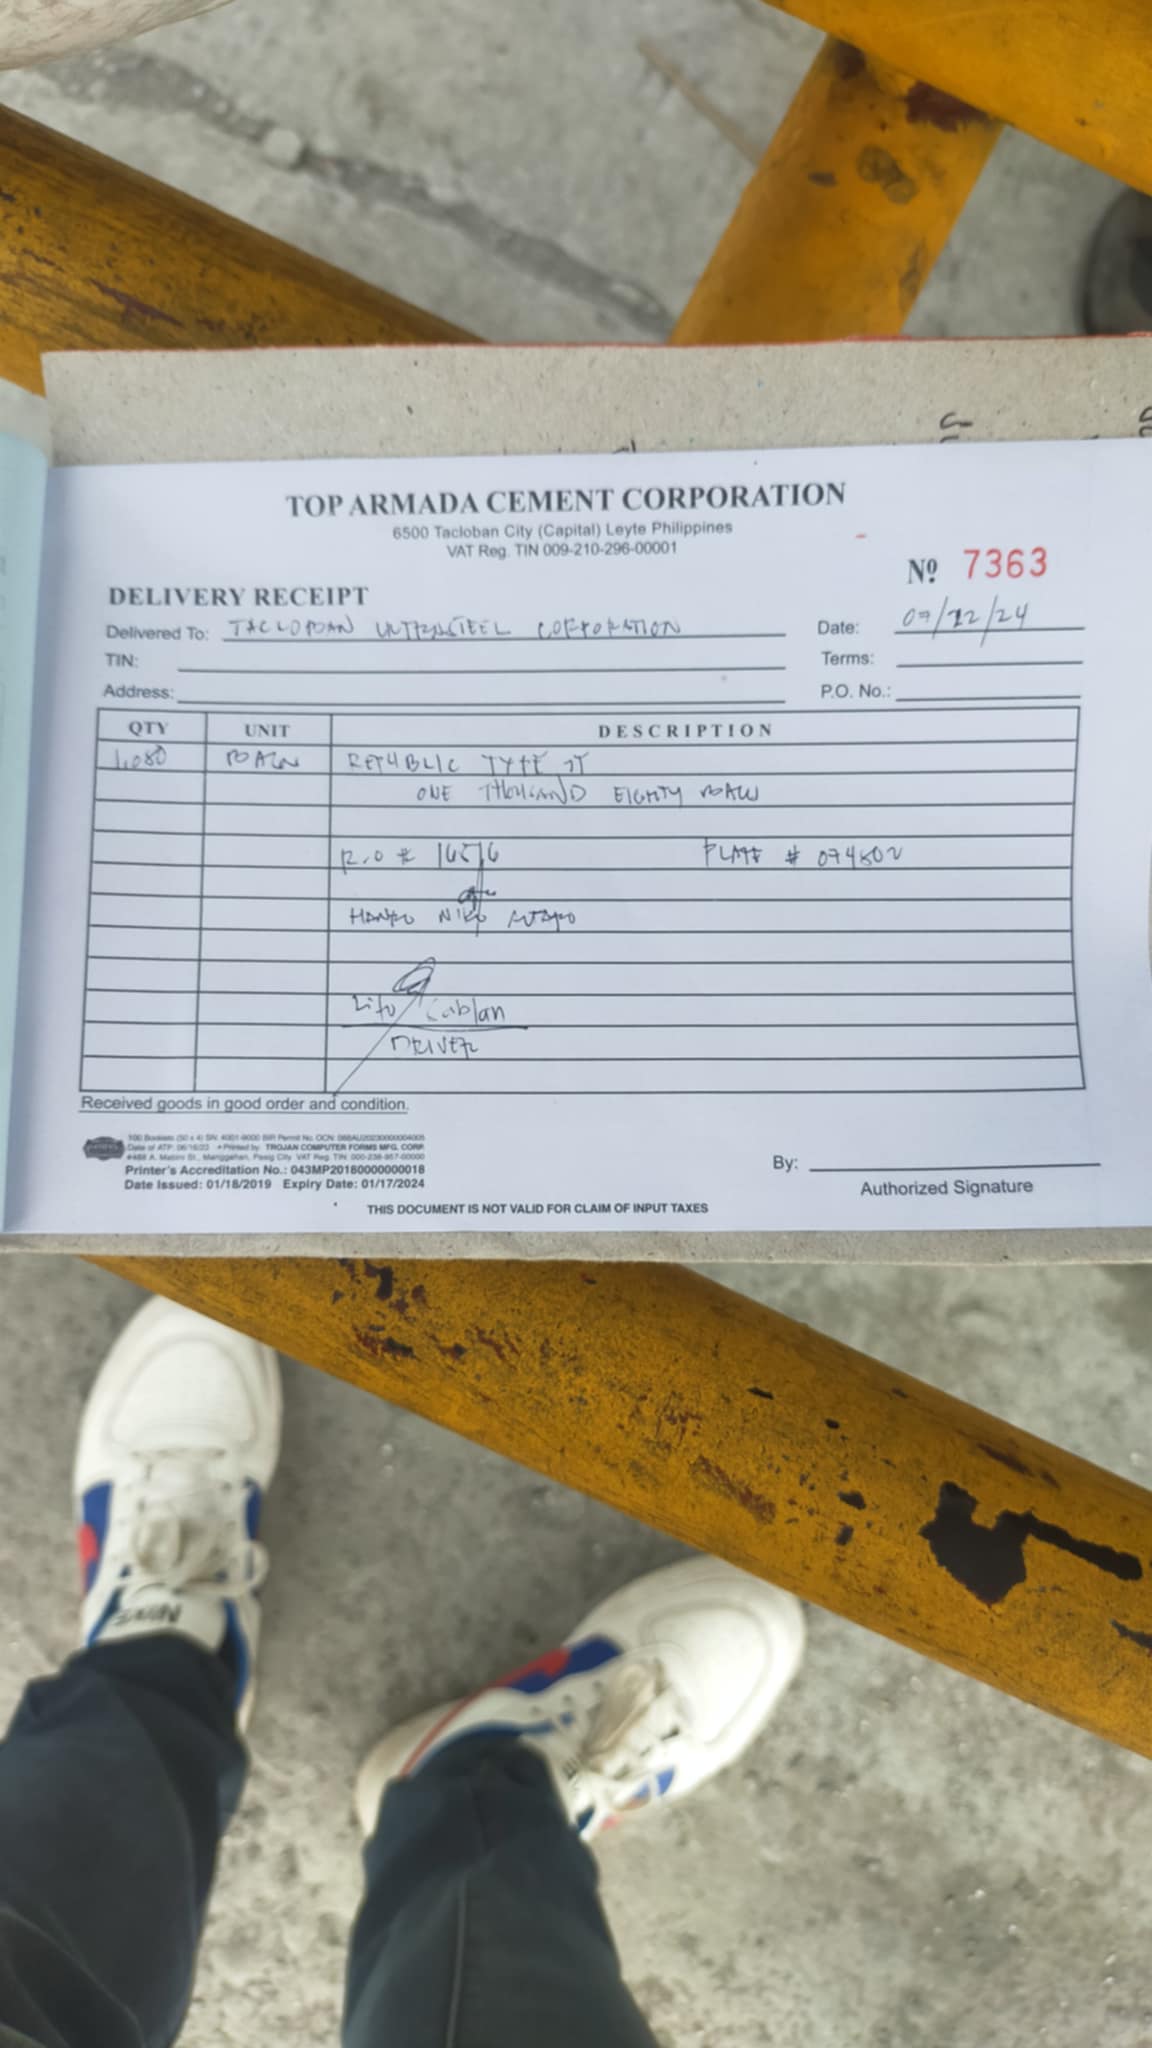 TOP ARMADA CEMENT CORPORATION
6500 Tacloban City (Capital) Leyte Philippines
VAT Reg. TIN 009-210-296-00001
Nº 7363
DELIVERY RECEIPT
Delivered To: TACLOBAN INTERSTEEL CORPORATION
Date: 07/22/24
TIN:
Terms:
Address:
P.O. No.:
QTY UNIT DESCRIPTION
1,080 BAGS REPUBLIC TYPE
ONE THOUSAND EIGHTY BAGS
R.O # 16576 PLATE #
NIKO
Lito Cablan
DRIVER
Received goods in good order and condition.
100 Booklets (50 x 4) SN: 4001-9000 BIR Permit No. OCN:
Date of ATP: 06/16/23 • Printed by: TROJAN COMPUTER FORMS MFG. CORP.
#488 A. Mabini St., Manggahan, Pasig City VAT Reg. TIN: 000-238-957-00000
Printer's Accreditation No.: 043MP20180000000018
Date Issued: 01/18/2019 Expiry Date: 01/17/2024
By:
Authorized Signature
THIS DOCUMENT IS NOT VALID FOR CLAIM OF INPUT TAXES